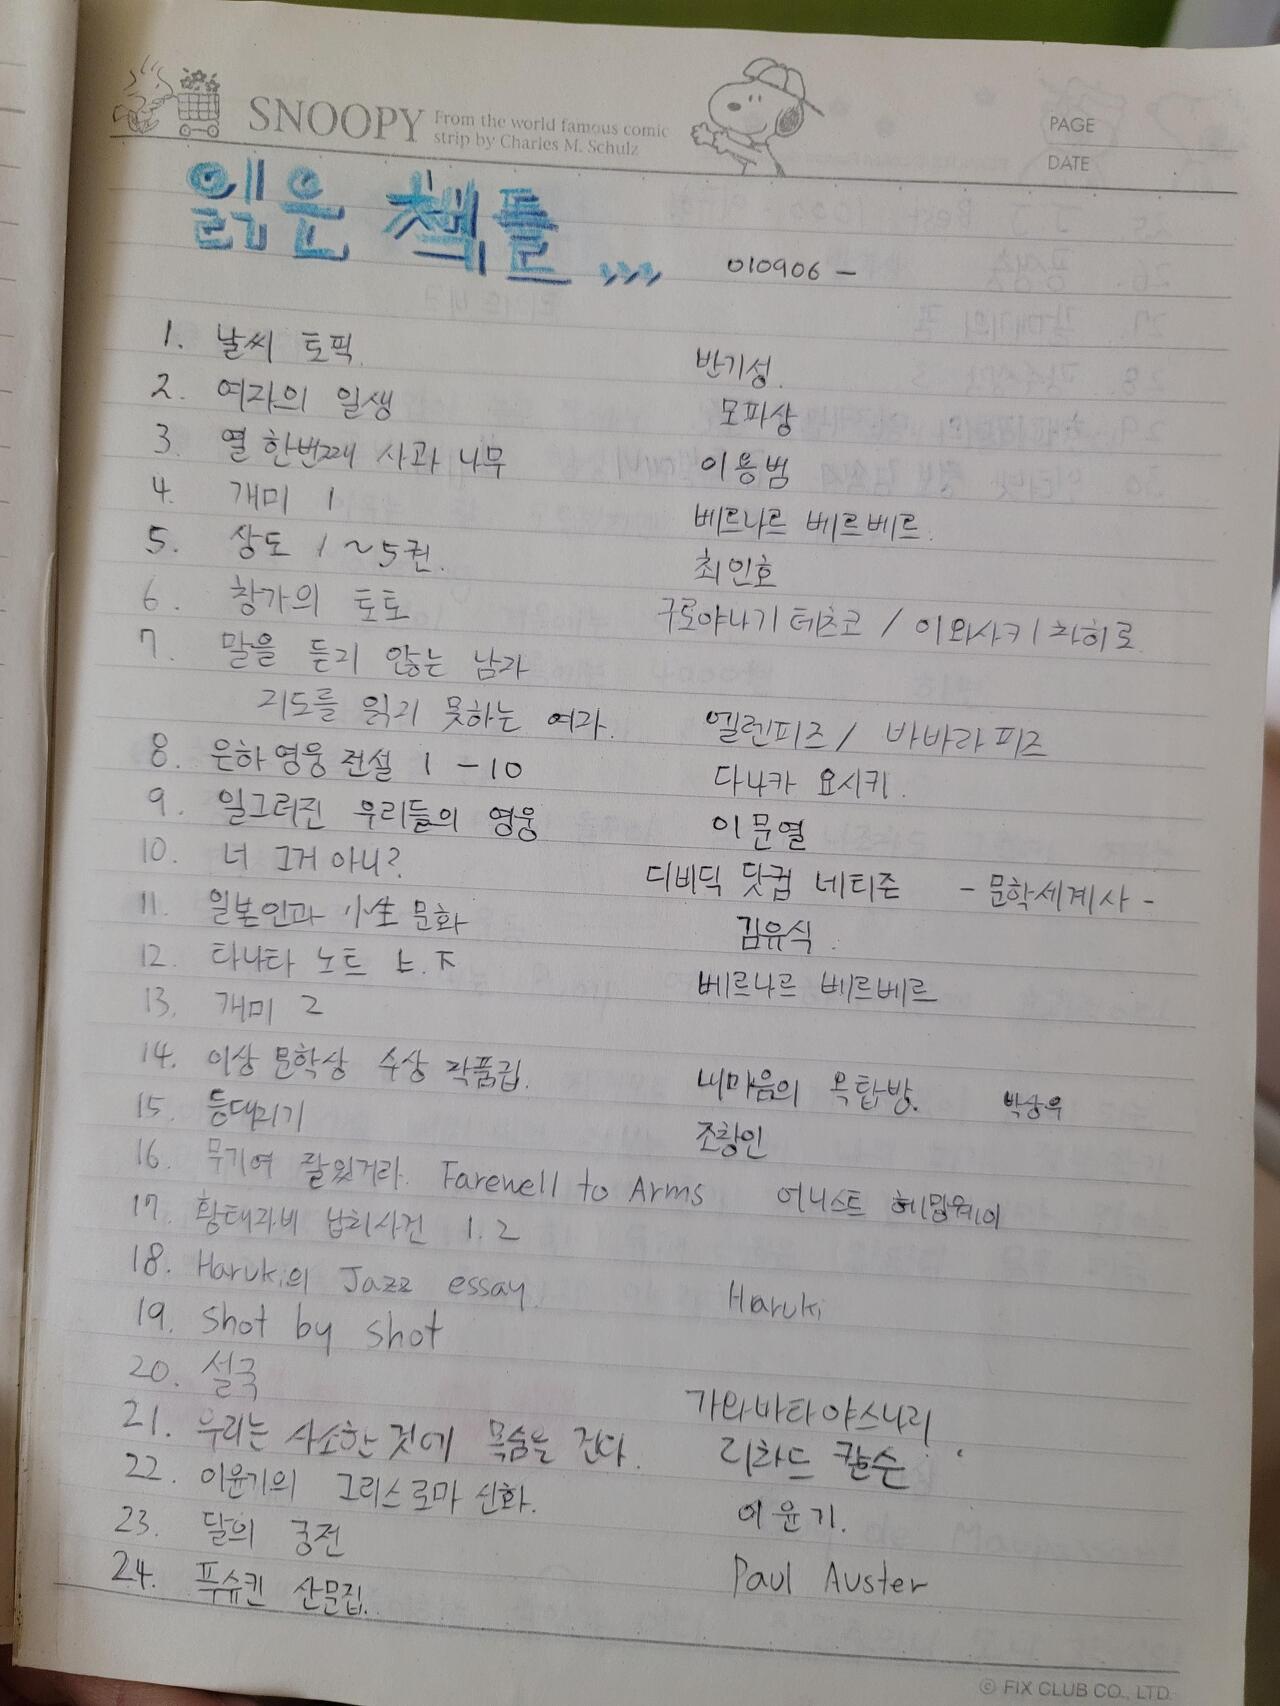 SNOOPY From the world famous comic
strip by Charles M. Schulz
PAGE
DATE
읽은 책들 ,,,,
010906 -
1. 날씨 토픽. 반기성.
2. 여자의 일생 모파상
3. 열 한번째 사과 나무 이용범
4. 개미 1 베르나르 베르베르.
5. 상도 1~5권. 최인호
6. 창가의 토토 구로야나기 테츠코 / 이와사키 치히로
7. 말을 듣지 않는 남자
지도를 읽지 못하는 여자. 엘렌피즈 / 바바라 피즈
8. 은하 영웅 전설 1 - 10 다나카 요시키.
9. 일그러진 우리들의 영웅 이문열
10. 너 그거 아니? 디비딕 닷컴 네티즌 - 문학세계사 -
11. 일본인과 小生 문화 김유식.
12. 타나타 노트 上.下 베르나르 베르베르
13. 개미 2
14. 이상 문학상 수상 작품집. 내마음의 옥탑방. 박상우
15. 등대지기 조창인
16. 무기여 잘있거라. Farewell to Arms 어니스트 헤밍웨이
17. 황태자비 납치사건 1. 2
18. Haruki의 Jazz essay. Haruki
19. Shot by shot
20. 설국 가와바타 야스나리
21. 우리는 사소한 것에 목숨을 건다. 리차드 칼슨
22. 이윤기의 그리스 로마 신화. 이윤기.
23. 달의 궁전 Paul Auster
24. 푸슈킨 산문집.
© FIX CLUB CO., LTD.